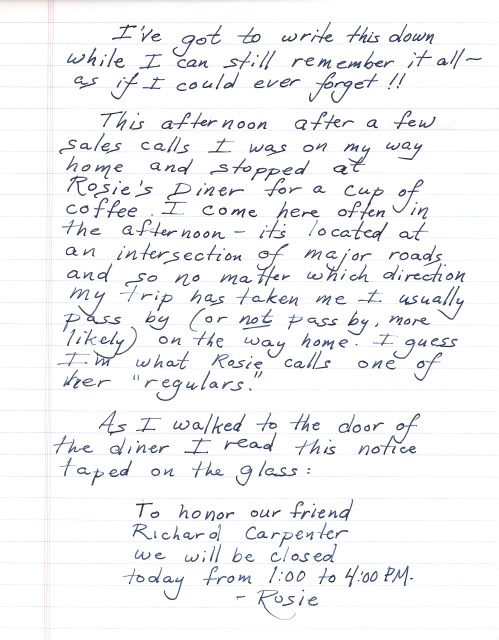 I've got to write this down
while I can still remember it all~
as if I could ever forget!!
This afternoon after a few
sales calls I was on my way
home and stopped at
Rosie's Diner for a cup of
coffee. I come here often in
the afternoon - it's located at
an intersection of major roads
and so no matter which direction
my trip has taken me I usually
pass by (or not pass by, more
likely) on the way home. I guess
I'm what Rosie calls one of
her "regulars."
As I walked to the door of
the diner I read this notice
taped on the glass:
To honor our friend
Richard Carpenter
we will be closed
today from 1:00 to 4:00 PM.
- Rosie